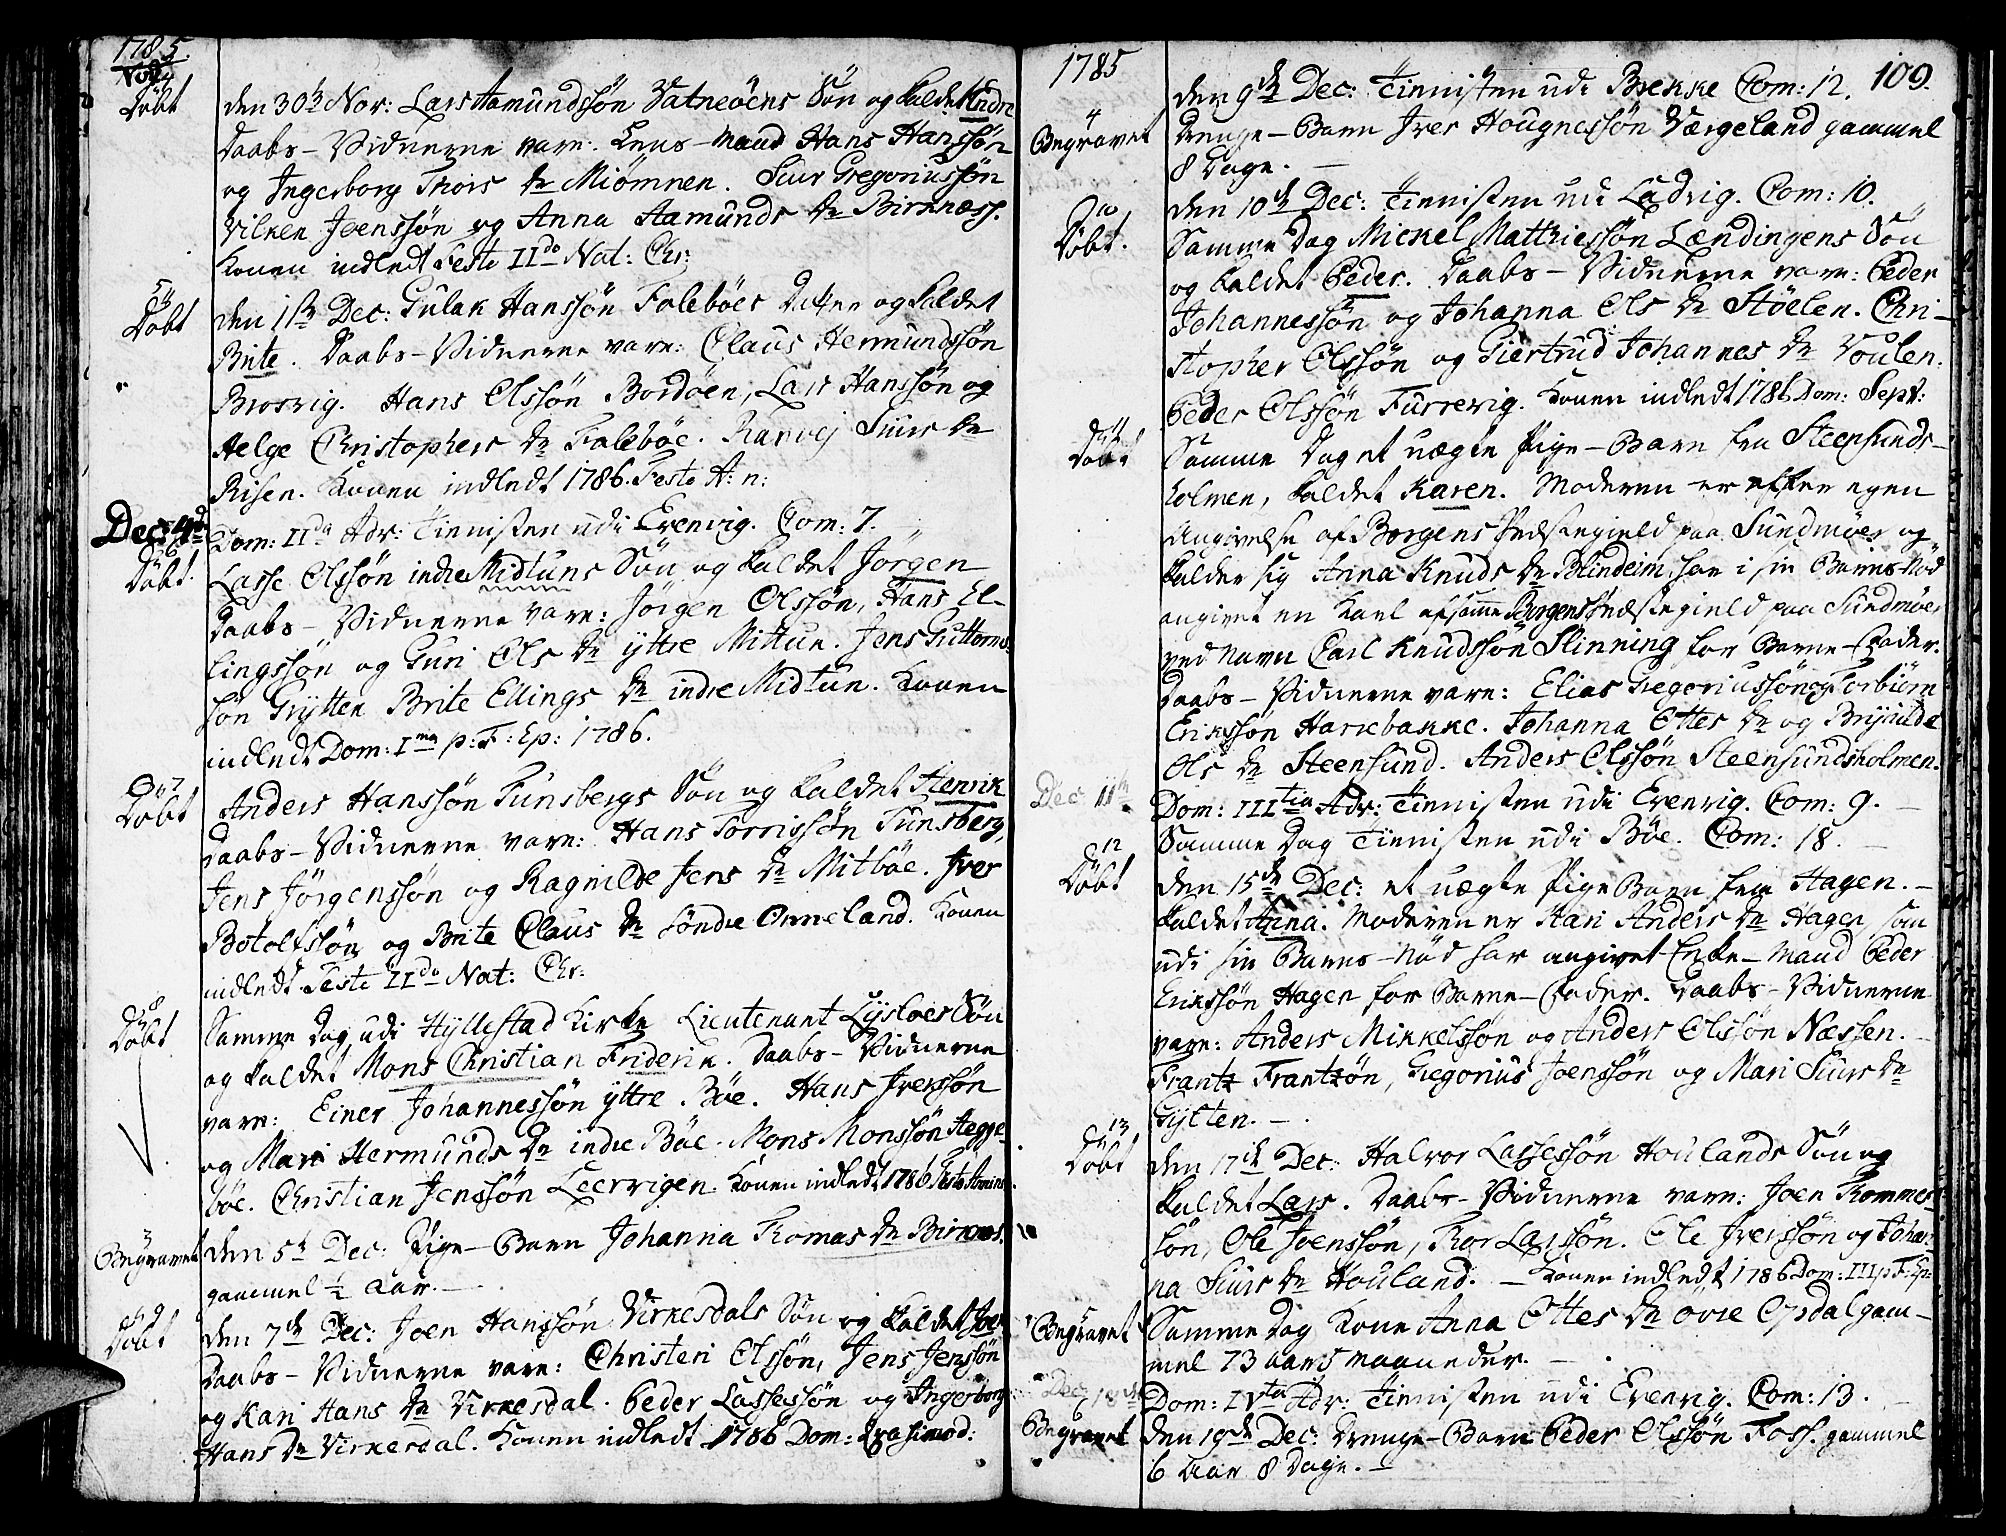 1785.
Nov:
Döbt
den 30te Nor: Lars Aamundssön Vatneöens Sön og kaldet Andre
Daabs-Vidnerne vare: Lens-Mand Hans Hanssön
og Ingerborg Thors Dr Miömnen. Siur Gregoriussön
Vilken Joenssön og Anna Aamunds Dr Birknæss.
Konen indledt Festo IIdo Nat: Chr:
5
Döbt
den 1ste Dec: Gulak Hanssön Faleböes Datter og kaldet
Brite. Daabs-Vidnerne vare: Claus Hermundssön
Brosvig. Hans Olssön Bordöen, Lars Hanssön og
Helge Christophers Dr Faleböe. Ranvej Siurs Dr
Risen. Konen indledt 1786. Festo A: n:
Dec: 4de
Dom: IIda Adv: Tienisten udi Evenvig. Com: 7.
6
Döbt.
Lasse Olssön indre Midtuns Sön og kaldet Jörgen
Daabs-Vidnerne vare: Jörgen Olssön, Hans El-
lingssön og Guri Ols Dr yttre Mittun. Jens Guttorms-
sön Grytten Brite Ellings Dr indre Midtun. Konen
indledt Dom: Ima p: F: Ep: 1786.
7
Döbt
Anders Hanssön Tunsbergs Sön og kaldet Henrik
Daabs-Vidnerne vare: Hans Torrissön Tunsberg,
Jens Jörgenssön og Ragnilde Jens Dr Mitböe. Iver
Botolfssön og Brite Claus Dr söndre Onneland. Konen
indledt Festo IIdo Nat: Chr:
8
Döbt
Samme Dag udi Hyllestad Kirke Lieutenant Lysloes Sön
og kaldet Mons Christian Friderik. Daabs-Vidnerne
vare: Einer Johannessön yttre Böe. Hans Iverssön
og Mari Hermunds Dr indre Böe. Mons Monssön Hegge-
böe. Christian Jenssön Leervigen. Konen indledt 1786
Begravet
den 5te Dec: Pige-Barn Johanna Thomas Dr Birknes.
gammel ½ Aar.
9
Döbt
den 7de Dec: Joen Hanssön Virkesdals Sön og kaldet Joen
Daabs-Vidnerne vare: Christen Olssön, Jens Jenssön
og Kari Hans Dr Virkesdal. Peder Lassessön og Ingerborg
Hans Dr Virkesdal. Konen indledt 1786 Dom: Qvasimod:
1785
109.
den 9de Dec: Tienisten udi Brekke Com: 12.
4
Begravet
Drenge-Barn Iver Hougnessön Værgeland gammel
8 Dage.
den 10de Dec: Tienisten udi Ladvig. Com: 10.
10
Döbt.
Samme Dag Mickel Matthiessön Lændingens Sön
og kaldet Peder. Daabs-Vidnerne vare: Peder
Johannessön og Johanna Ols Dr Stöelen. Chri-
stopher Olssön og Giertrud Johannes Dr Voulen.
Peder Olssön Furrevig. Konen indledt 1786 Dom: Sept:
11
Döbt
Samme Dag et uægte Pige-Barn fra Steensunds-
holmen, kaldet Karen. Moderen er efter egen
Angivelse af Borgens Præstegield paa Sundmöer og
kalder sig Anna Knuds Dr Blindeim, har i sin Barns-Nöd
angivet en Karl af samme Borgens Præstegield paa Sundmöer
ved Navn Carl Knudssön Slinning for Barne-Fader.
Daabs-Vidnerne vare: Elias Gregoriussön og Torbiörn
Erikssön Harkebakke. Johanna Ottes Dr og Brynilde
Ols Dr Steensund. Anders Olssön Steensundsholmen.
Dec 11te
Dom: IIItia Adv: Tienisten udi Evenvig. Com: 9.
Samme Dag Tienisten udi Böe. Com: 18.
12
Döbt
den 15de Dec: et uægte Pige Barn fra Hagen.
kaldet Anna. Moderen er Kari Anders Dr Hagen, som
udi sin Barns-Nöd har angivet Enke-Mand Peder
Erikssön Hagen for Barne-Fader. Daabs-Vidnerne
vare: Anders Mikkelssön og Anders Olssön Næssen.
Frantz Frantzön, Gregorius Joenssön og Mari Siurs Dr
Gylten.
13
Döbt
den 17de Dec: Halvor Lassessön Houlands Sön og
kaldet Lars. Daabs-Vidnerne vare: Joen Thommes-
sön, Ole Joenssön, Thor Larssön. Ole Iverssön og Johan-
na Siurs Dr Houland. Konen indledt 1786 Dom: III p: F: Ep:
Begravet
Samme Dag Kone Anna Ottes Dr övre Opdal gam-
mel 73 Aar 5 Maaneder.
Dec: 18de
Dom: IVta Adv: Tienisten udi Evenvig. Com: 13.
Begravet
den 19de Dec: Drenge-Barn Peder Olssön Foss. gammel
6 Aar 8 Dage.